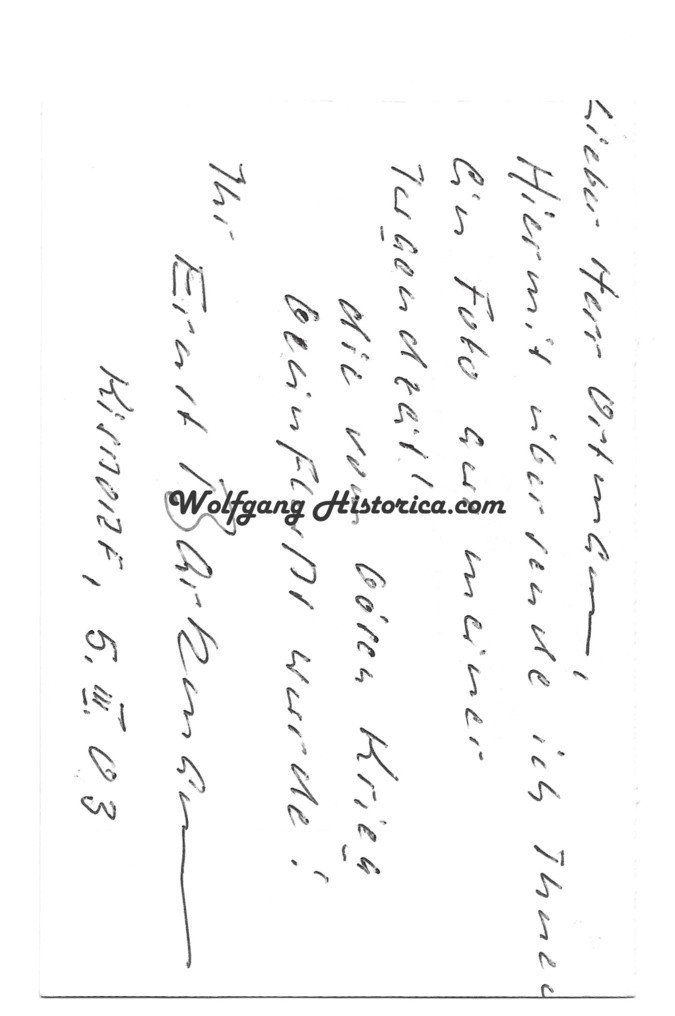 Lieber Herr Ortmann,
Hiermit übersende ich Ihnen
ein Foto aus meiner
Jugendzeit!
die vom bösen Krieg
beeinflußt wurde!
Ihr
Ernst Barkmann
Kisdorf, 5. III. 03
Wolfgang Historica.com